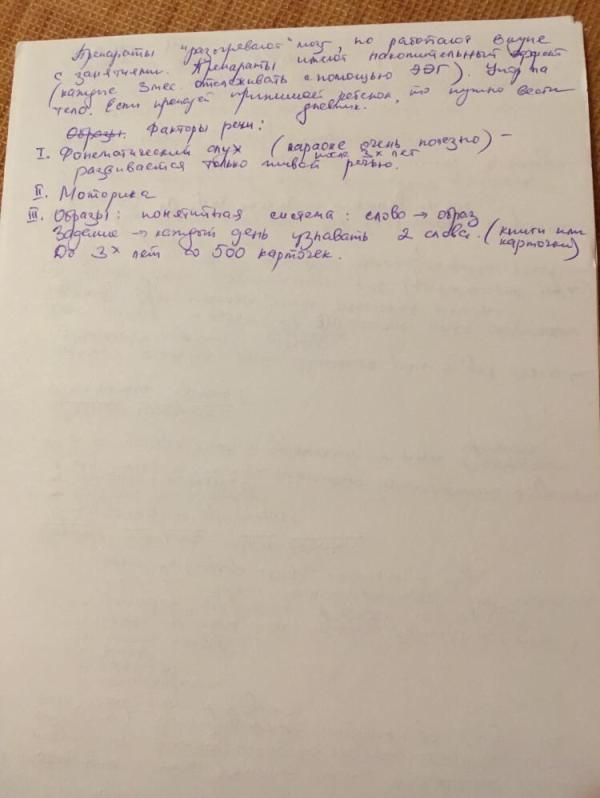 Препараты "разогревают" мозг, но работают вкупе
с занятиями. Препараты имеют накопительный эффект
(каждые 3 мес. отслеживать с помощью ЭЭГ). Упор на
тело. Если препарат принимает ребенок, то нужно вести
дневник.
Образы. Факторы речи:
I. Фонематический слух (караоке очень полезно) -
после 3х лет
развивается только живой речью.
II. Моторика
III. Образы: понятийная система: слово → образ
Задание → каждый день узнавать 2 слова. (книги или
карточки)
До 3х лет до 500 карточек.